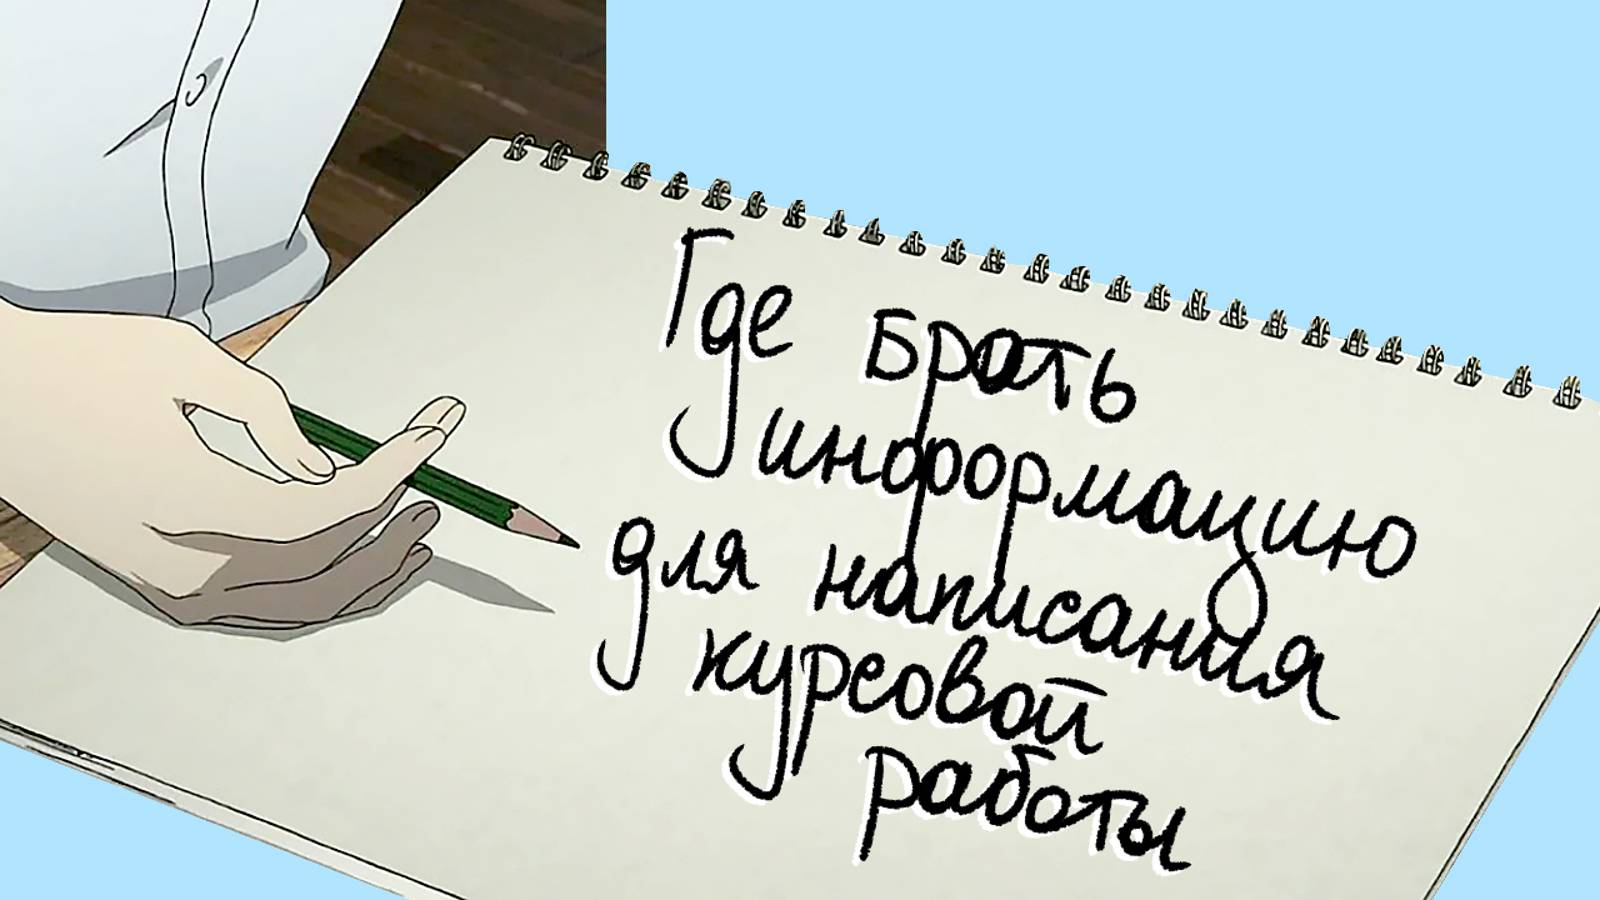 Где брать
информацию
для написания
курсовой
работы